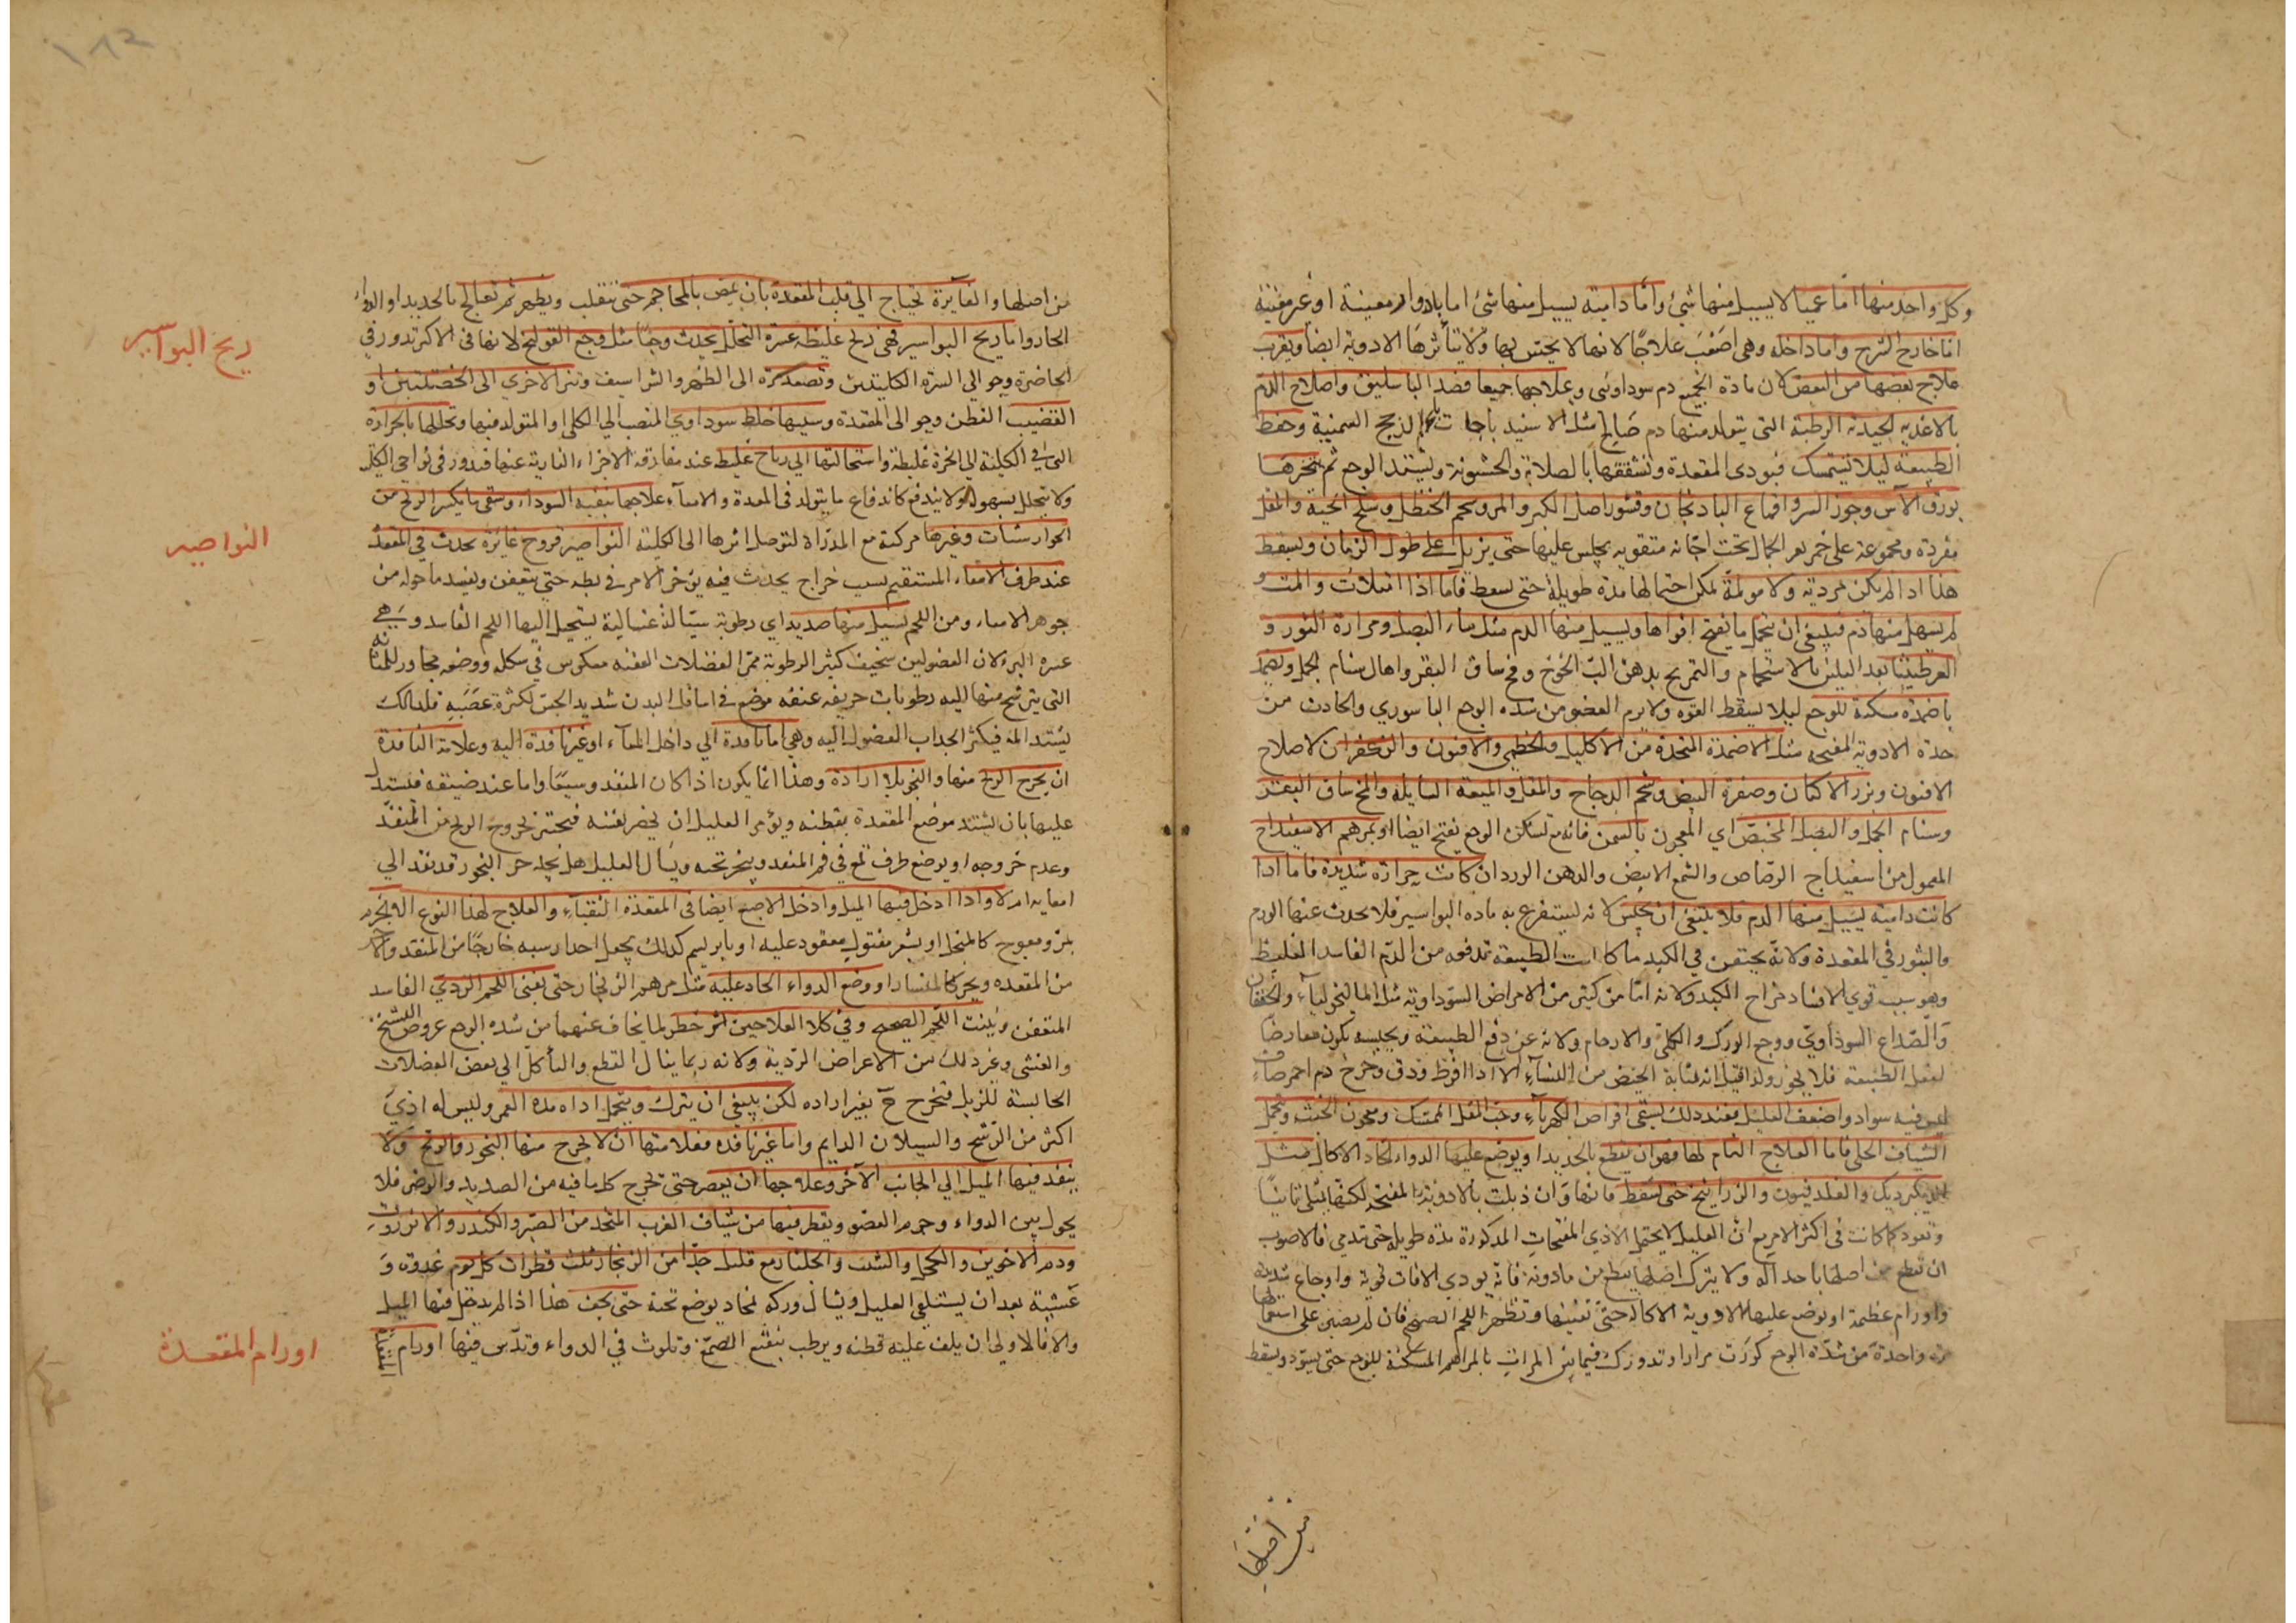 وكل واحد منها اما عميا لا يسيل منها شئ واما دامية يسيل منها شئ اما بادوار معينة او غير معينة
اما خارج الشرج واما داخله وهى اصعب علاجًا لانها لا يحس بها ولا يتأثرها الادوية ايضا ويقرب
علاج بعضها من البعض لان مادة الجميع دم سوداوى وعلاجها جميعا فصد الباسليق واصلاح الدم
بالاغذيه الجيدة الرطبة التى يتولد منها دم صالح مثل الاسفيد باجات السمنية وحفظ
الطبيعة ليلا تستمسك فيودى المقعدة وتشققها بالصلابة والخشونة ويشتد الوجع ثم بخرها
بورق الآس وجوز السرو واقماع البادنجان وقشور اصل الكبر والمر وشحم الحنظل وسلخ الحية والمقل
مفردة ومجموعة على جمر بعر الجمال تحت اجانه مثقوبه يجلس عليها حتى يزيل على طول الزمان ويسقط
هذا اذا لم يكن مردية ولا مولمة يمكن احتمالها مدة طويلة حتى يسقط فاما اذا امتلات والمت و
لم يسهل منها دم فينبغى ان يتحمل ما يفتح افواها ويسيل منها الدم مثل ماء البصل ومرارة الثور و
العرطنيثا بعد التليين بالاستحمام والتمريخ بدهن لب الخوخ ومخ ساق البقر واهال سنام الجمل ويضمد
باضمدة مسكنة للوجع ليلا يسقط القوه ولا يرم العضو من شده الوجع الباسوري والحادث من
حدة الادوية المفتحه مثل الاضمدة المتخذة من الاكليل والخطمى والافيون والزعفران لاصلاح
الافيون وبزر الاكتان وصفرة البيض وشحم الدجاج والمقل والميعة السايلة والمخ ساق البقر
وسنام الجمل والبصل المخبص اي المعجون بالسمن فانه مع تسكين الوجع يفتح ايضا او بمرهم الاسفيداج
المعمول من اسفيداج الرصاص والشمع الابيض والدهن الورد ان كانت حرارة شديدة فاما اذا
كانت دامية يسيل منها الدم فلا ينبغى ان يحبس لانه ليستفرغ به ماده البواسير فلا يحدث عنها الورم
والبثور في المقعدة ولانه يحتقن في الكبد ما كانت الطبيعة تدفعه من الدم الفاسد الغليظ
وهو سبب قوي لافساد مزاج الكبد ولانه امان من كثير من الامراض السوداوية مثل الماليخوليآء والخفقان
والصداع السوداوي ووجع الورك والكلى والارحام ولانه عن دفع الطبيعة وبحبسه يكون معارضا
لفعل الطبيعة فلا يجوز ولذا قيل انه بمثابة الحيض من النسآء الا اذا افرط ودق وخرج دم احمر صاف
ليس فيه سواد واضعف العليل فعند ذلك يسقى اقراص الكهربآء وحب المقل الممسك ومعجون الخبث وتحمل
الشياف الحلى فاما العلاج التام لها فهو ان يقطع بالحديد او يوضع عليها الدواء الحاد الاكال مثل
الديكبرديك والقلدفيون والزرانيخ حتى يسقط فانها وان ذبلت بالادوية المفتحه لكنها تمتلى ثانيًا
وتعود كما كانت فى اكثر الامر مع ان العليل لا يحتمل الاذي المفتحات المذكورة مدة طويله حتى تدمي فالاصوب
ان تقطع من اصلها باحد اله ولا يترك اصلها يقطع من مادونه فانه يودي الافات قوية واوجاع شديدة
واورام عظيمة او توضع عليها الادوية الاكالة حتى تفنيها وتظهر اللحم الصحيح فان لم يصبر على استعمالها
مرة واحدة من شدة الوجع كررت مرارا وتدورك فيما بين المرات بالمراهم المسكنة للوجع حتى يسود ويسقط
من اصلها
من اصلها والغايرة تحتاج الى قلب المقعدة بان يمص بالمحاجم حتى ينقلب ويظهر ثم تعالج بالحديد او الدواء
الحاد واما ريح البواسير فهى ريح غليظة عسرة التحلل يحدث وجعًا مثل وجع القولنج لانها فى الاكثر تدور في
الخاصرة وحوالي السرة الكليتين وتصعد كرة الى الظهر والشراسيف وتنزل اخري الى الخصيتين او
القضيب القطن وحوالى المقعدة وسببها خلط سوداوي المنصب الى الكلى او المتولد فيها وتحللها بالحرارة
التى فى الكلية الى ابخرة غليظة واستحالتها الى رياح غليظ عند مفارقة الاجزاء النارية عنها فيدور في نواحى الكلى
ولا يتحلل بسهولة ولا يندفع كاندفاع ما يتولد فى المعدة والامعآء علاجها تنقية السوداء وسقى ما يكسر الريح من
الجوارشنات وغيرها مركبة مع المدرات لتوصل اثرها الى الكلية النواصير قروح غائرة تحدث في المقعد
عند طرف الامعاء المستقيم بسبب خراج يحدث فيه يوخر الامر فى بطه حتى يتعفن ويفسد ما حوله من
جوهر الامعاء ومن اللحم يسيل منها صديد اي رطوبة سيالة غسالية يستحيل اليها اللحم الفاسد وهي
عسره البرء لان العضو لين سخيف كثير الرطوبة ممر الفضلات العفنه معكوس في شكله ووضعه مجاور للمثانه
التى يترشح منها اليه رطوبات حريفه عفنه موضع فى اسافل البدن شديد الحس لكثرة عصبه فلذلك
يشتد المه فيكثر انجذاب الفضول اليه وهى اما نافدة الى داخل المعآء او غير نافدة اليه وعلامة النافدة
ان يخرج الريح منها والنجو بلا ارادة وهذا انما يكون اذا كان المنفد وسيعًا واما عند ضيقه فيستدل
عليها بان يشتد موضع المقعدة بقطنه ويؤمر العليل ان يحصر نفسه فيختبر بخروج الريح من المنفد
وعدم خروجه او يوضع طرف قمع في فم المنفد ويبخر تحته ويسأل العليل هل يجد حر البخور قد نفد الى
امعايه ام لا واذا ادخل فيها الميل وادخل الاصبع ايضا فى المقعدة التقيآء والعلاج لهذا النوع الخرم
بخزم معوج كالمنجل او بشعر مفتول معقود عليه او بابريسم كذلك يجعل احد راسيه خارجًا من المنفد والاخر
من المقعده ويحز كالمنشار او وضع الدواء الحاد عليه مثل مرهم الزنجار حتى يفنى اللحم الردي الفاسد
المتعفن وينبت اللحم الصحيح وفي كلا العلاجين خطر لما يخاف عنهما من شده الوجع عروض التشنج
والغشى وغير ذلك من الاعراض الردية ولانه ربما ينال القطع والتأكل الى بعض العضلات
الحابسة للزبل فتخرج ح بغير اراده لكن ينبغي ان يترك ويتحمل اذاه مده العمر وليس له اذي
اكثر من الرشح والسيلان الدايم واما غير نافده فعلامتها ان لا يخرج منها النجو والريح ولا
ينفد فيها الميل الى الجانب الآخر وعلاجها ان يعصر حتى تخرج كل ما فيه من الصديد والوضر فلا
يحول بين الدواء وجرم العضو ويقطر فيها من شياف الغرب المتخد من الصبر والكندر والانزروت
ودم الاخوين والكحل والشب والجلنار مع قليل جدا من الزنجار ثلث قطرات كل يوم غدوة و
عشية بعد ان يستلقى العليل ويشال وركه بمخاد يوضع تحته حتى يجف هذا اذا لم يدخل فيها الميل
والا فالاولى ان يلف عليه قطنه ويرطب بنقيع الصمغ وتلوث في الدواء وتدس فيها اورام المقعدة
ريح البواسير
النواصير
اورام المقعدة
١٨٢